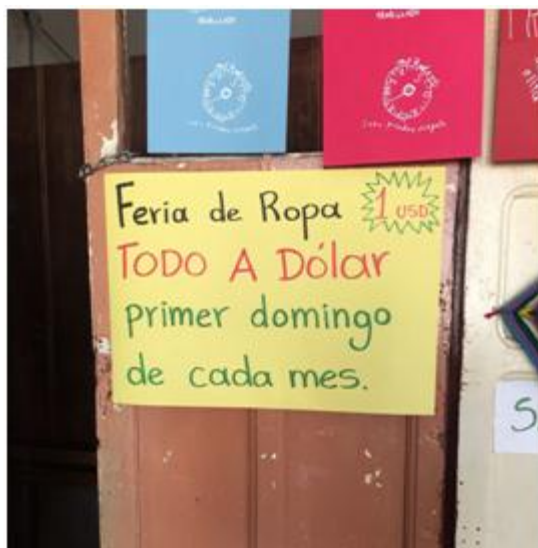 Feria de Ropa 1 USD
TODO A Dólar
primer domingo
de cada mes.
S